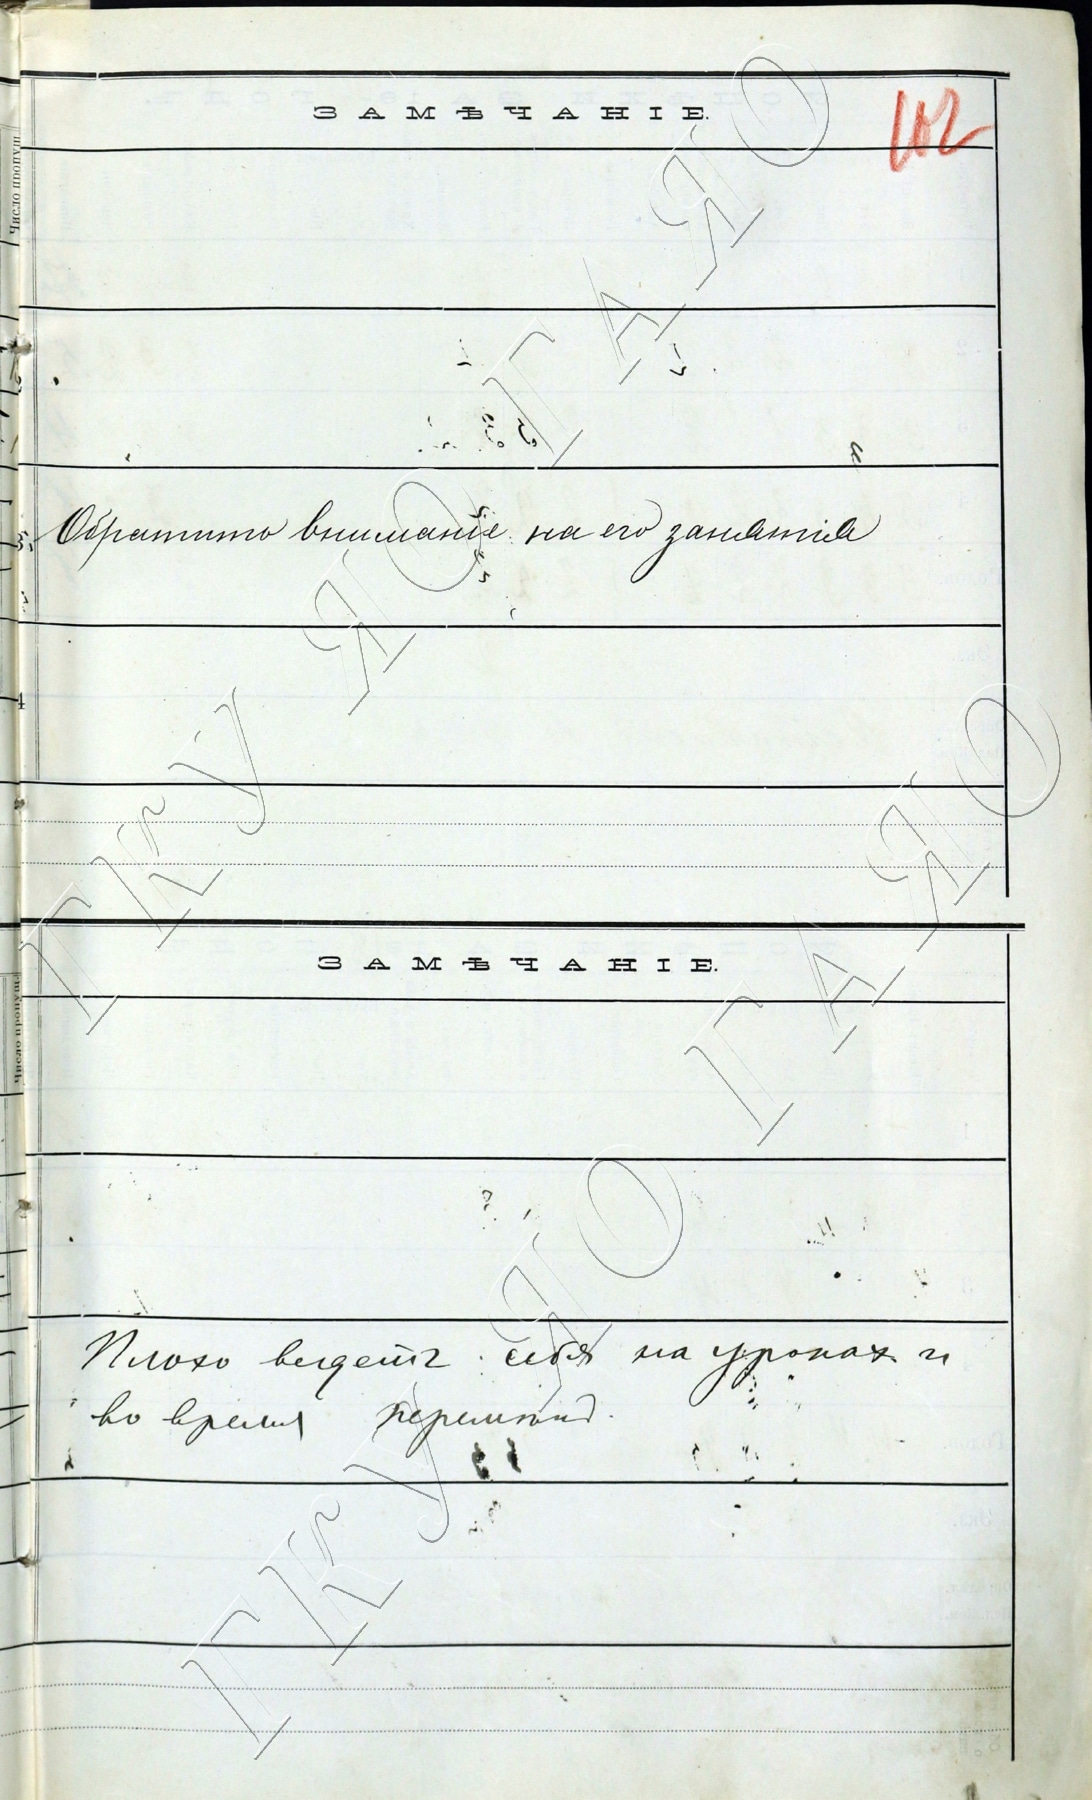 ЗАМѢЧАНІЕ.
102
Число пропущ
Обратить вниманіе на его занятія
4
ЗАМѢЧАНІЕ.
Число пропущ
Плохо ведетъ себя на урокахъ и
во время перемѣнъ.
ГКУ ЯО ГАЯО
ГКУ ЯО ГАЯО